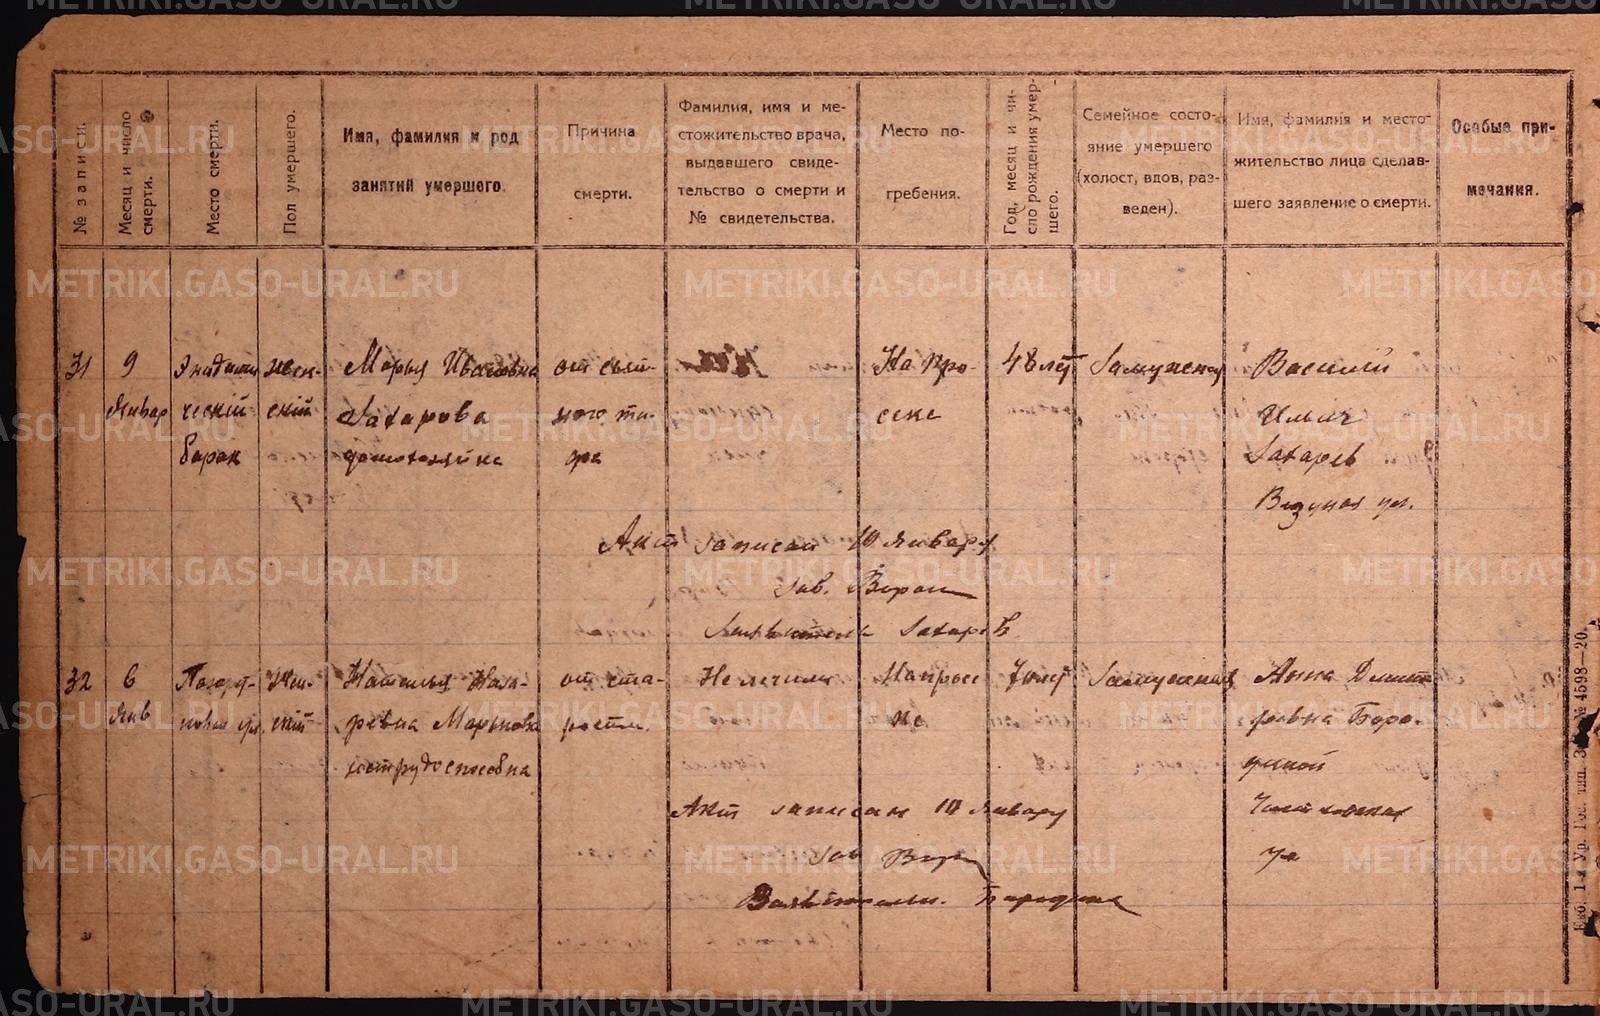 № записи.
Месяц и число
смерти.
Место смерти.
Пол умершего.
Имя, фамилия и род
занятий умершего.
Причина
смерти.
Фамилия, имя и ме-
стожительство врача,
выдавшего свиде-
тельство о смерти и
№ свидетельства.
Место по-
гребения.
Год, месяц и чи-
сло рождения умер-
шего.
Семейное состо-
яние умершего
(холост, вдов, раз-
веден).
Имя, фамилия и место-
жительство лица сделав-
шего заявление о смерти.
Особые при-
мечания.
31
9
Январ
Эпидеми
ческій
барак
женс-
скій
Марья Ивановна
Захарова
домохозяйка
от сып-
ного ти-
фа
На про-
секе
48 лет
Замужняя
Василий
Ильич
Захаров
ул.
Акт записан 10 Января
Зав.
Заявитель Захаров
32
6
Янв
Жен-
скій
Наталья Наза-
ровна Маркова
нетрудоспособна
от ста-
рости.
Не лечили
На прос
ке
70 лет
Замужняя
Анна Дмит
риевна Боро-
диной
Акт записан 10 Января
Зав
METRIKI.GASO-URAL.RU
Екб. 1-я Ур. Гос. тип. Зак. № 4598—20.